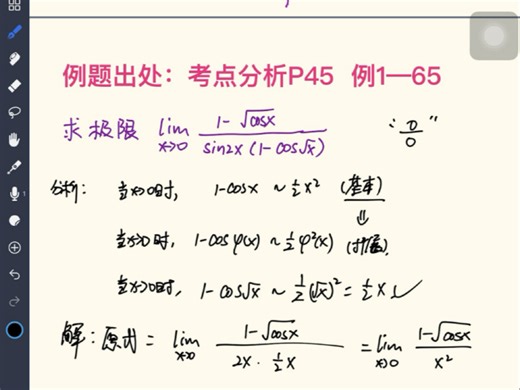 例题出处：考点分析P45 例1—65
求极限 lim x→0 (1-√cosx)/(sin2x(1-cos√x)) “0/0”
分析: 当x→0时, 1-cosx ~ ½x² (基本)
⇓
当x→0时, 1-cosφ(x) ~ ½φ²(x) (扩展)
当x→0时, 1-cos√x ~ ½(√x)² = ½x ✓
解: 原式 = lim x→0 (1-√cosx)/(2x·½x) = lim x→0 (1-√cosx)/x²